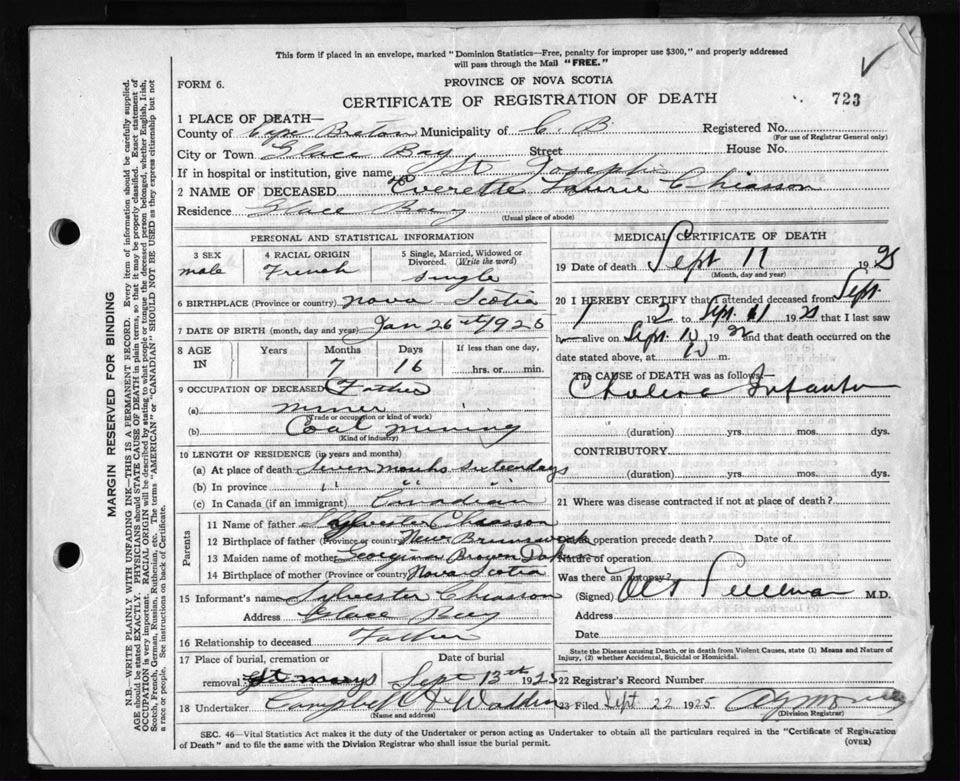 This form if placed in an envelope, marked "Dominion Statistics—Free, penalty for improper use $300," and properly addressed
will pass through the Mail "FREE."
FORM 6.
PROVINCE OF NOVA SCOTIA
CERTIFICATE OF REGISTRATION OF DEATH
723
1 PLACE OF DEATH—
County of Cape Breton Municipality of C B Registered No.
(For use of Registrar General only)
City or Town Glace Bay Street House No.
If in hospital or institution, give name St Josephs
2 NAME OF DECEASED Everette Laurie Chiasson
Residence Glace Bay
(Usual place of abode)
PERSONAL AND STATISTICAL INFORMATION
3 SEX 4 RACIAL ORIGIN 5 Single, Married, Widowed or Divorced. (Write the word)
male French Single
6 BIRTHPLACE (Province or country) Nova Scotia
7 DATE OF BIRTH (month, day and year) Jan 26 1925
8 AGE IN Years Months Days If less than one day,
7 16 hrs. or min.
9 OCCUPATION OF DECEASED Father
(a) miner
(Trade or occupation or kind of work)
(b) Coal mining
(Kind of industry)
10 LENGTH OF RESIDENCE (in years and months)
(a) At place of death seven months sixteen days
(b) In province " "
(c) In Canada (if an immigrant) Canadian
Parents
11 Name of father Sylvester Chiasson
12 Birthplace of father (Province or country) New Brunswick
13 Maiden name of mother Georgina Brown
14 Birthplace of mother (Province or country) Nova Scotia
15 Informant's name Sylvester Chiasson
Address Glace Bay
16 Relationship to deceased Father
17 Place of burial, cremation or Date of burial
removal St marys Sept 13th 1925
18 Undertaker Campbell &
(Name and address)
MEDICAL CERTIFICATE OF DEATH
19 Date of death Sept 11 1925
(Month, day and year)
20 I HEREBY CERTIFY that I attended deceased from Sept
1 192 to Sept 11 192 that I last saw
h alive on Sept. 10 192 and that death occurred on the
date stated above, at 10 m.
The CAUSE of DEATH was as follows—
Cholera Infantum
(duration) yrs. mos. dys.
CONTRIBUTORY
(duration) yrs. mos. dys.
21 Where was disease contracted if not at place of death?
Did operation precede death? Date of
Nature of operation
Was there an autopsy?
(Signed) M.D.
Address
Date
State the Disease causing Death, or in death from Violent Causes, state (1) Means and Nature of
Injury, (2) whether Accidental, Suicidal or Homicidal.
22 Registrar's Record Number
23 Filed Sept 22 1925
(Division Registrar)
SEC. 46—Vital Statistics Act makes it the duty of the Undertaker or person acting as Undertaker to obtain all the particulars required in the "Certificate of Registration
of Death" and to file the same with the Division Registrar who shall issue the burial permit.
(OVER)
MARGIN RESERVED FOR BINDING
N.B.—WRITE PLAINLY WITH UNFADING INK—THIS IS A PERMANENT RECORD. Every item of information should be carefully supplied.
AGE should be stated EXACTLY. PHYSICIANS should STATE CAUSE OF DEATH in plain terms, so that it may be properly classified. Exact statement of
OCCUPATION is very important. RACIAL ORIGIN will be described by stating to what people or tongue the deceased person belonged, whether English, Irish,
Scotch, French, German, Russian, Ruthenian, etc. The terms "AMERICAN" or "CANADIAN" SHOULD NOT BE USED as they express citizenship but not
a race or people. See instructions on back of Certificate.